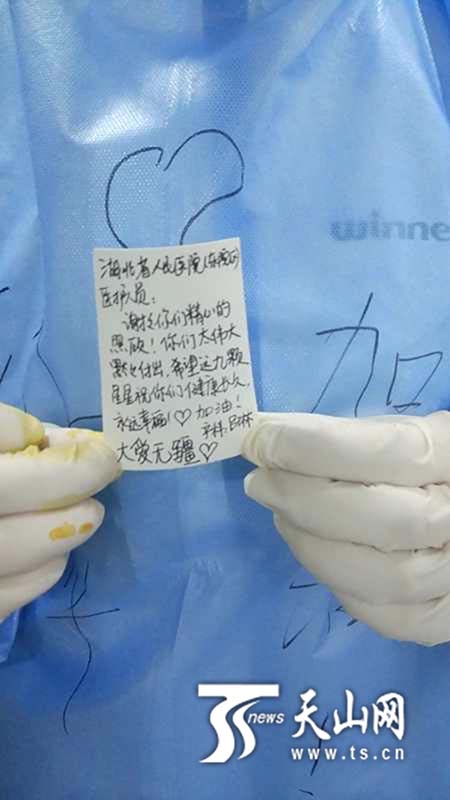 winne
湖北省人民医院(东院区)
医护人员:
谢谢你们精心的
照顾!你们太伟大
默默付出,希望这九颗
星星祝你们健康长久,
永远幸福!♡加油!
大爱无疆♡
加
news 天山网
www.ts.cn